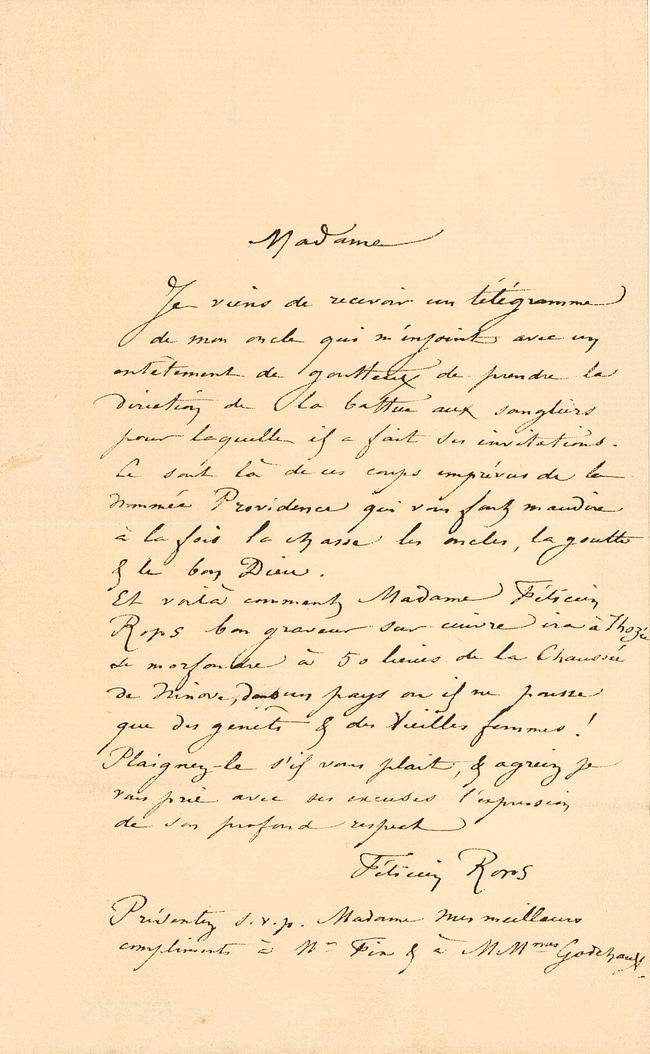 Madame
Je viens de recevoir un télégramme
de mon oncle qui m'enjoint avec un
entêtement de goutteux de prendre la
direction de la battue aux sangliers
pour laquelle il a fait ses invitations.
Ce sont là de ces coups imprévus de la
nommée Providence qui vous font maudire
à la fois la chasse les oncles, la goutte
& le bon Dieu.
Et voilà comment Madame Félicien
Rops bon graveur sur cuivre ira à Thozée
se morfondre à 50 lieues de la Chaussée
de Ninove, dans un pays où il ne pousse
que des genêts & des vieilles femmes !
Plaignez-le s'il vous plait, & agréez je
vous prie avec ses excuses l'expression
de son profond respect
Félicien Rops
Présentez s.v.p. Madame mes meilleurs
compliments à Fin & à MMmes Godchaux.